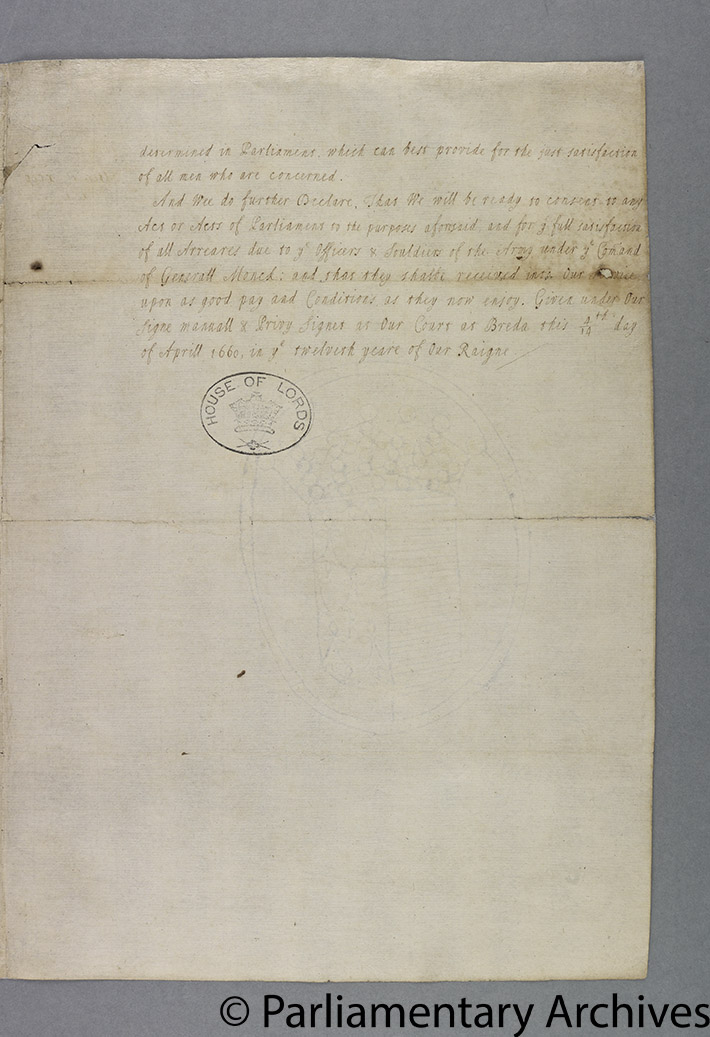 determined in Parliament, which can best provide for the just satisfaction
of all men who are concerned.
And Wee do further Declare, That We will be ready to consent to any
Act or Acts of Parliament to the purposes aforsaid, and for yͤ full satisfaction
of all Arreares due to yͤ Officers & Souldiers of the Army under yͤ Comand
of Generall Monck: and that they shalbe received into Our
upon as good pay and Conditions as they now enjoy. Given under Our
Signe mannall & Privy Signet at Our Court at Breda this 4/14th day
of Aprill 1660, in yͤ twelveth yeare of Our Raigne
HOUSE OF LORDS
© Parliamentary Archives